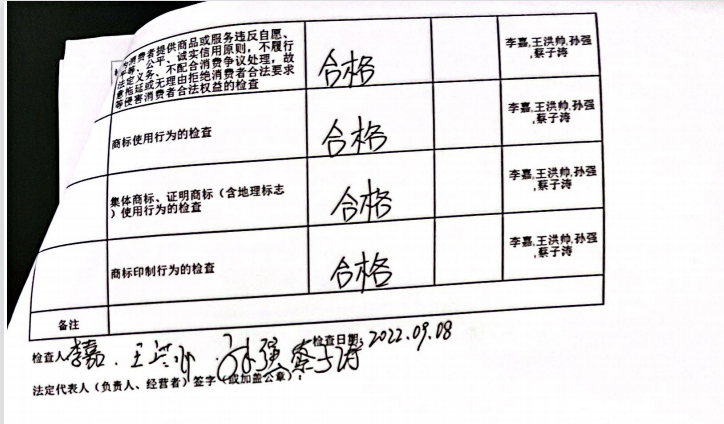 为消费者提供商品或服务违反自愿、
平等、公平、诚实信用原则，不履行
法定义务、不配合消费争议处理，故
意拖延或无理由拒绝消费者合法要求
等侵害消费者合法权益的检查
合格
李嘉,王洪帅,孙强
,蔡子涛
商标使用行为的检查
合格
李嘉,王洪帅,孙强
,蔡子涛
集体商标、证明商标（含地理标志
）使用行为的检查
合格
李嘉,王洪帅,孙强
,蔡子涛
商标印制行为的检查
合格
李嘉,王洪帅,孙强
,蔡子涛
备注
检查人 李嘉.王洪帅.孙强 蔡子涛 检查日期：2022.09.08
法定代表人（负责人、经营者）签字（或加盖公章）：